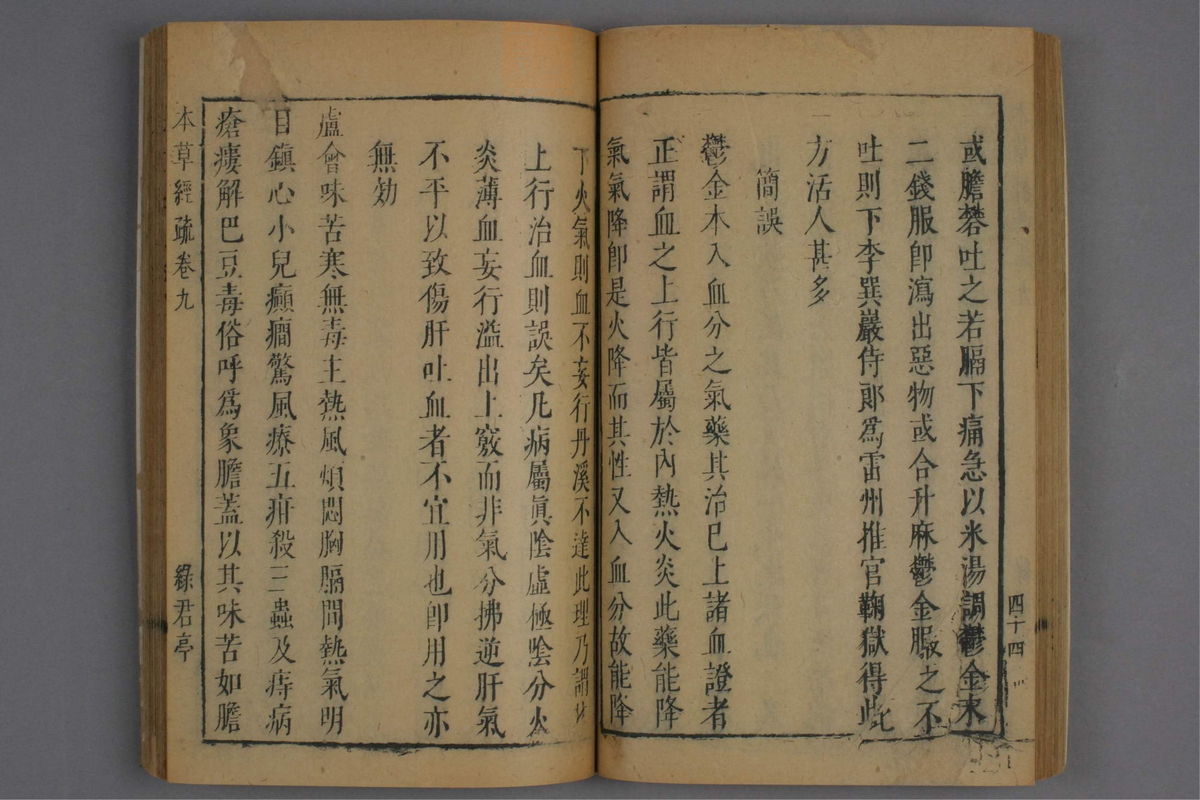 或膽礬吐之若膈下痛急以米湯調鬱金末
二錢服卽瀉出惡物或合升麻鬱金服之不
吐則下李巽巖侍郎為雷州推官鞠獄得此
方活人甚多
簡誤
鬱金本入血分之氣藥其治已上諸血證者
正謂血之上行皆屬於內熱火炎此藥能降
氣氣降卽是火降而其性又入血分故能降
下火氣則血不妄行丹溪不達此理乃謂
上行治血則誤矣凡病屬眞陰虛極陰分火
炎薄血妄行溢出上竅而非氣分拂逆肝氣
不平以致傷肝吐血者不宜用也卽用之亦
無効
盧會味苦寒無毒主熱風煩悶胸膈間熱氣明
目鎮心小兒癲癇驚風療五疳殺三蟲及痔病
瘡瘻解巴豆毒俗呼爲象膽蓋以其味苦如膽
本草經疏卷九
綠君亭
四十四